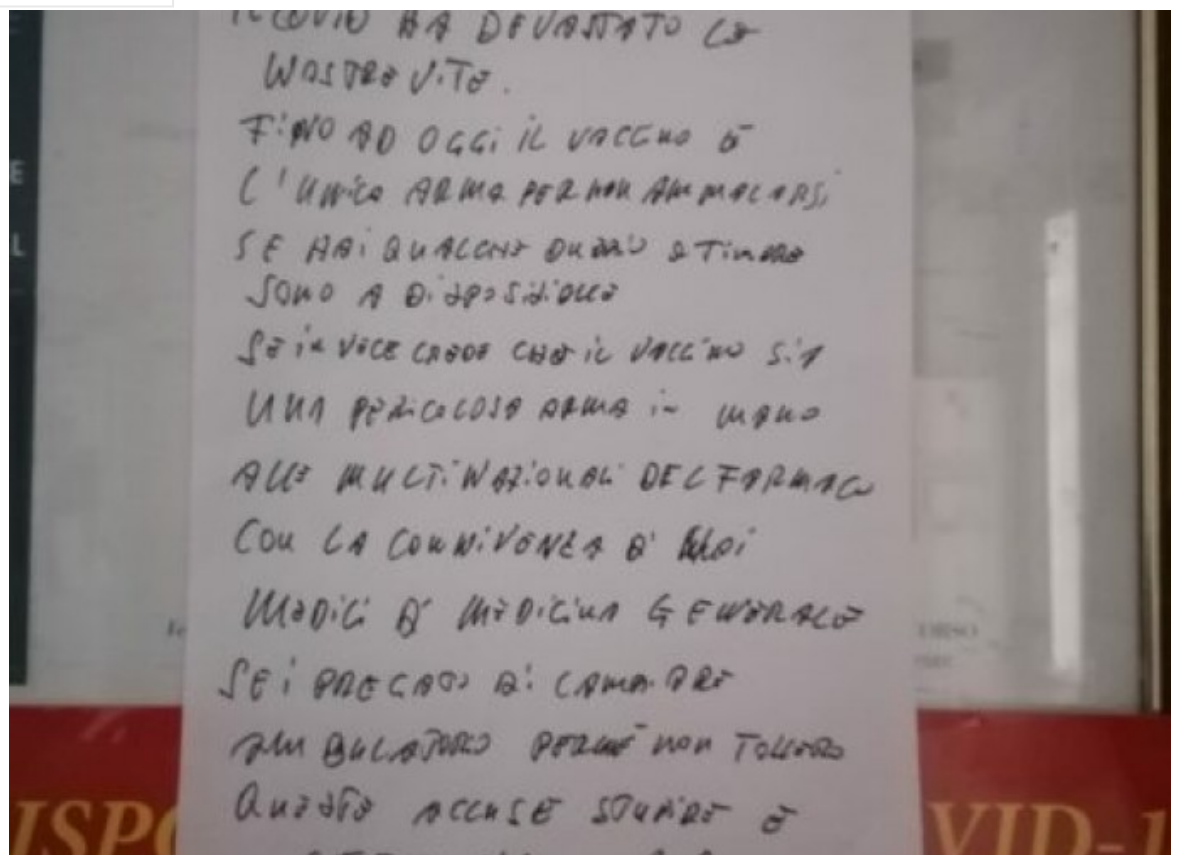 IL COVID HA DEVASTATO LE
NOSTRE VITE.
FINO AD OGGI IL VACCINO È
L'UNICA ARMA PER NON AMMALARSI
SE HAI QUALCHE DUBBIO E TIMORE
SONO A DISPOSIZIONE
SE INVECE CREDI CHE IL VACCINO SIA
UNA PERICOLOSA ARMA IN MANO
ALLE MULTINAZIONALI DEL FARMACO
CON LA CONNIVENZA DI NOI
MEDICI DI MEDICINA GENERALE
SEI PREGATO DI CAMBIARE
AMBULATORIO PERCHÉ NON TOLLERO
QUESTE ACCUSE STUPIDE E
E
L
ISPO
VID-1